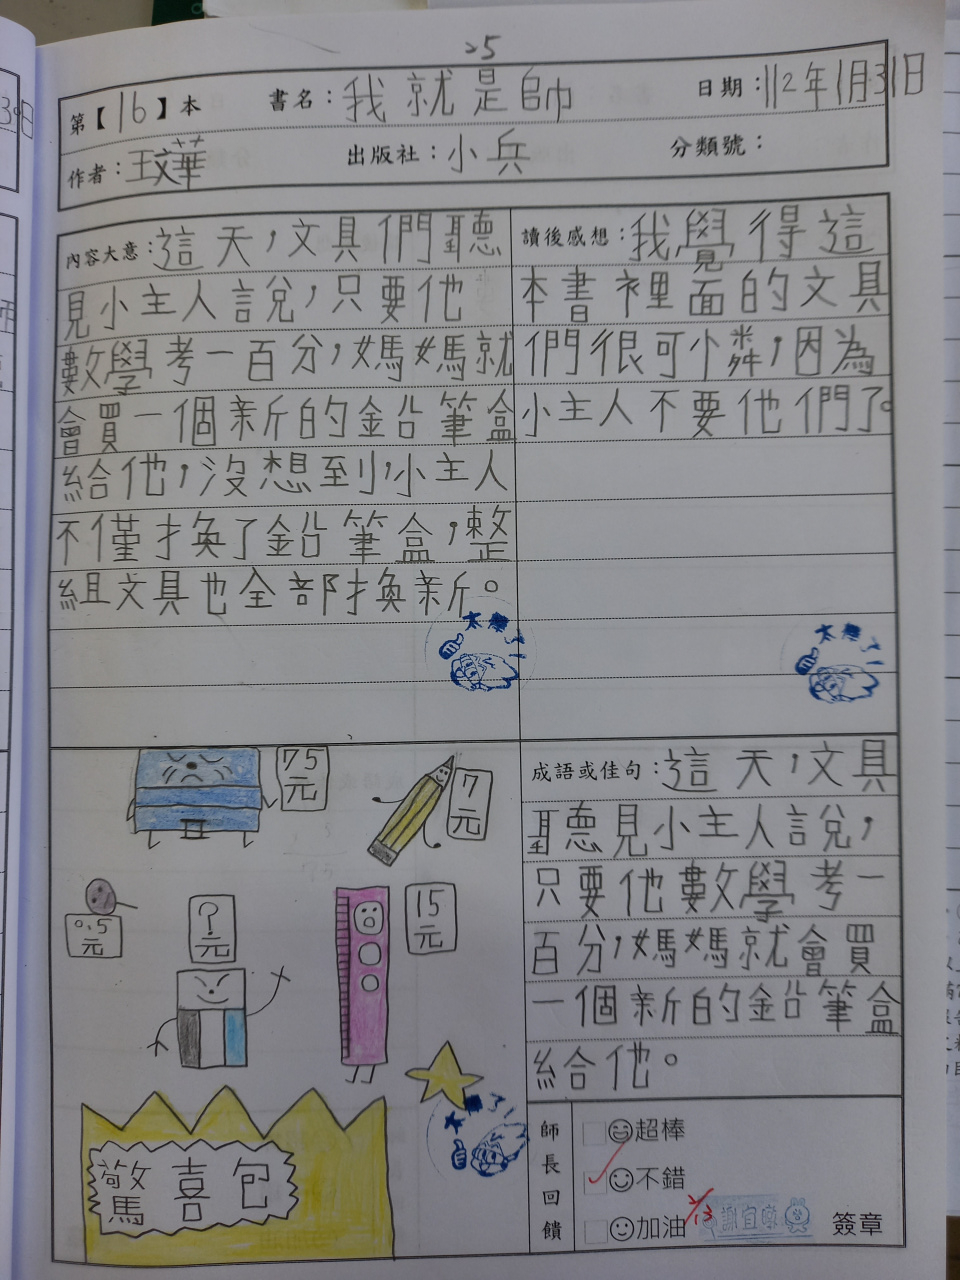 25
第【16】本 書名：我就是帥 日期：112年1月31日
作者：王文華 出版社：小兵 分類號：
內容大意：這天，文具們聽
見小主人說，只要他
數學考一百分，媽媽就
會買一個新的鉛筆盒
給他，沒想到小小主人
不僅換了鉛筆盒，整
組文具也全部換新。
太棒了！
讀後感想：我覺得這
本書裡面的文具
們很可憐，因為
小主人不要他們了。
太棒了！
75
元
7
元
0.5
元
?
元
15
元
驚喜包
太棒了！
成語或佳句：這天，文具
聽見小主人說，
只要他數學考一
百分，媽媽就會買
一個新的鉛筆盒
給他。
師長回饋
超棒
不錯
加油 2/13 簽章